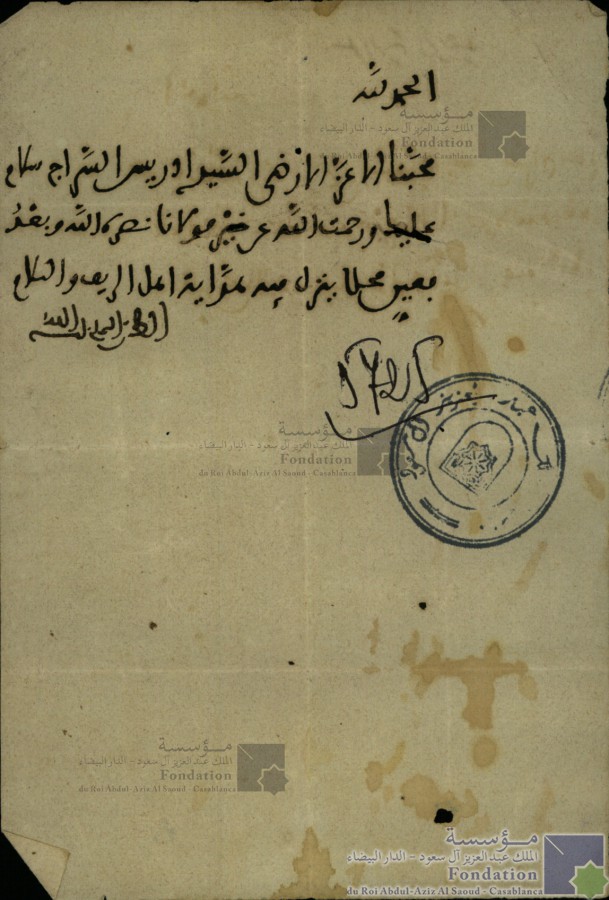 الحمد لله
محبنا الاعز الارضى السيد ادريس السراج سلام
عليك ورحمت الله عن خير مولانا نصره الله وبعد
فعين محلا ينزل فيه لمراية اهل الريف والسلام
مؤسسة
الملك عبد العزيز آل سعود - الدار البيضاء
Fondation
du Roi Abdul-Aziz Al Saoud - Casablanca
مؤسسة
الملك عبد العزيز آل سعود - الدار البيضاء
Fondation
du Roi Abdul-Aziz Al Saoud - Casablanca
مؤسسة
الملك عبد العزيز آل سعود - الدار البيضاء
Fondation
du Roi Abdul-Aziz Al Saoud - Casablanca
مؤسسة
الملك عبد العزيز آل سعود - الدار البيضاء
Fondation
du Roi Abdul-Aziz Al Saoud - Casablanca